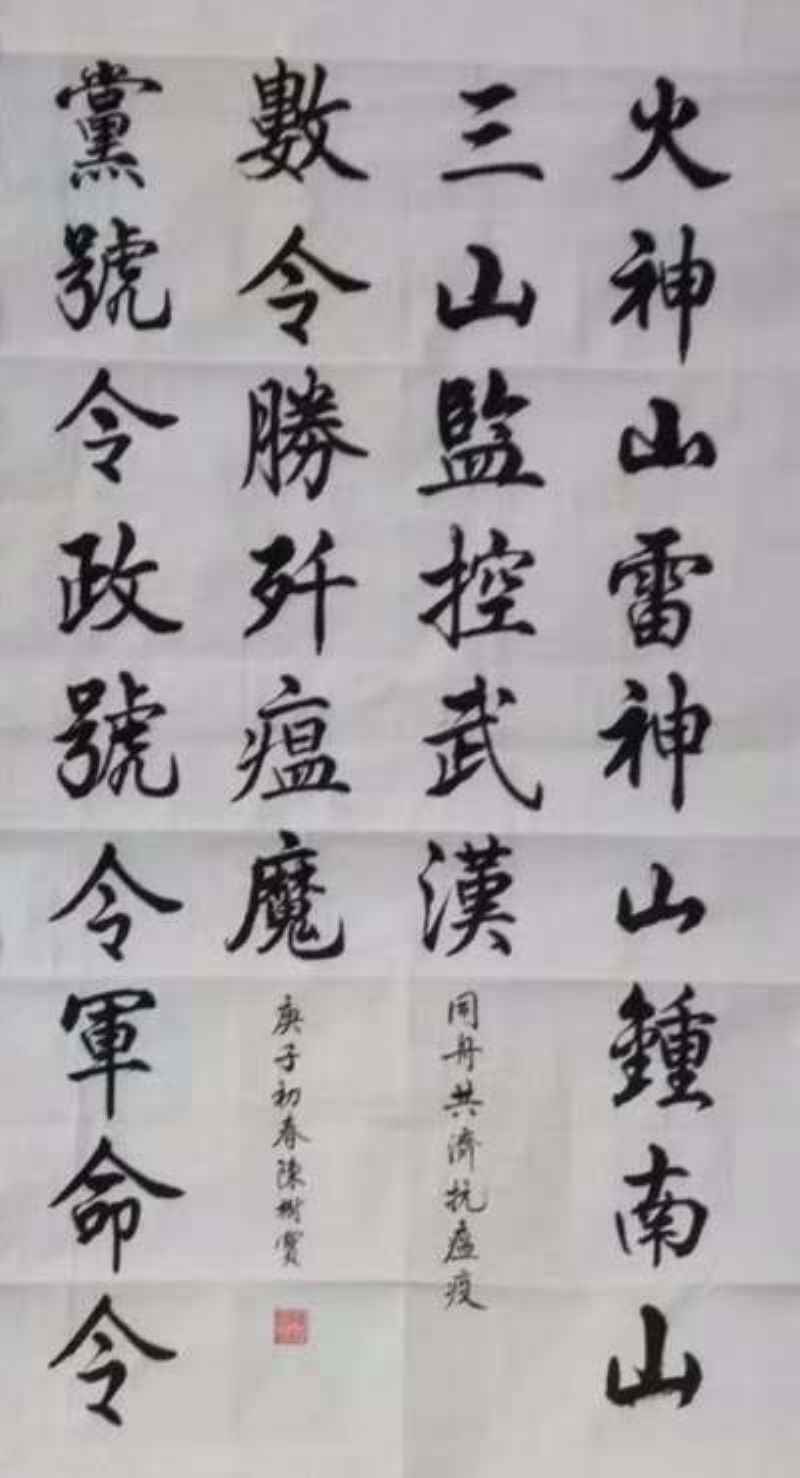 火神山雷神山鍾南山
三山監控武漢
同舟共濟抗瘟疫
黨號令政號令軍命令
數令勝歼瘟魔
庚子初春陳樹